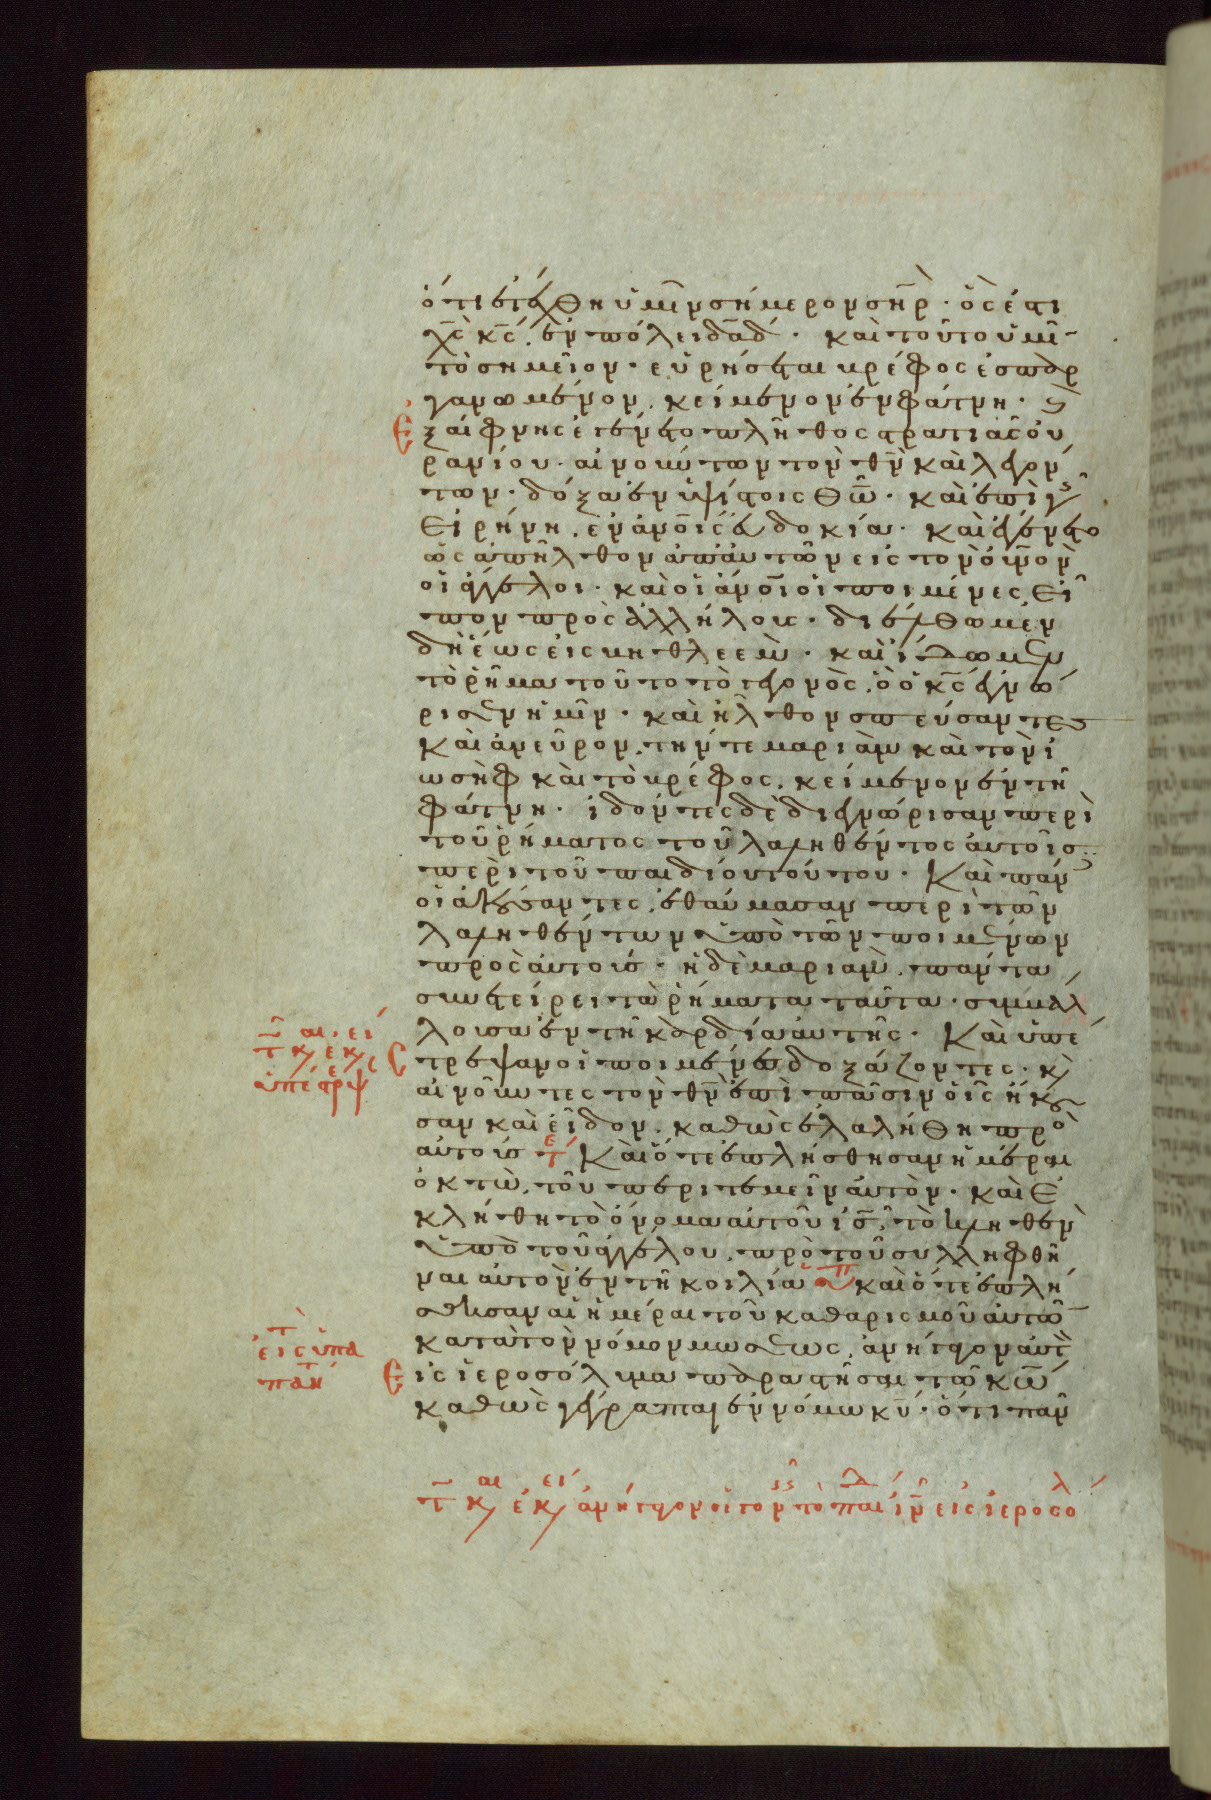 ὅτι ἐτέχθη ὑμῖν σήμερον σ̅η̅ρ̅· ὅς ἐστι
χ̅ς̅ κ̅ς̅, ἐν πόλει δ̅α̅δ̅· καὶ τοῦτο ὑμῖ
τὸ σημεῖον· εὑρήσεται βρέφος ἐσπαρ
γανωμένον, κείμενον ἐν φάτνη· κ(αὶ)
ἐξαίφνης ἐγένετο πλῆθος στρατιᾶς οὐ
ρανίου· αἰνούντων τὸν θ̅ν̅ καὶ λεγόν
των· δόξα ἐν ὑψίστοις θ̅ω̅· καὶ ἐπὶ γῆς
εἰρήνη, ἐν ἀ̅ν̅ο̅ι̅ς̅ εὐδοκία· καὶ ἐγένετο
ὡς ἀπῆλθον ἀπ' αὐτῶν εἰς τὸν ο̅υ̅ν̅ο̅ν̅
οἱ ἄγγελοι· καὶ οἱ ἀ̅ν̅ο̅ι̅ οἱ ποιμένες εἶ
πον πρὸς ἀλλήλους· διέλθωμεν
δὴ ἕως εἰς βηθλεὲμ· καὶ ἴδωμεν
τὸ ρῆμα τοῦτο τὸ γεγονὸς, ὃ ὁ κ̅ς̅ ἐγνώ
ρισεν ἡμῖν· καὶ ἦλθον σπεύσαντες
καὶ ἀνεῦρον, τήν τε μαριὰμ καὶ τὸν ἰ
ωσὴφ καὶ τὸ βρέφος, κείμενον ἐν τῆ
φάτνη· ἰδόντες δὲ διεγνώρισαν περὶ
τοῦ ρήματος τοῦ λαληθέντος αὐτοῖς
περὶ τοῦ παιδίου τούτου· Καὶ πάν(τες)
οἱ ἀκούσαντες, ἐθαύμασαν περὶ τῶν
λαληθέντων ὑπὸ τῶν ποιμένων
πρὸς αὐτούς· ἡ δὲ μαριὰμ, πάντα
συνετήρει τὰ ρήματα ταῦτα· συμβάλ
λουσα ἐν τῆ καρδία αὐτῆς· Καὶ ὑπέ
στρεψαν οἱ ποιμένες δοξάζοντες· κ(αὶ)
αἰνοῦντες τὸν θ̅ν̅ ἐπὶ πᾶσιν οἷς ἤκου
σαν καὶ εἶδον, καθὼς ἐλαλήθη πρὸ
αὐτούς τέ Καὶ ὅτε ἐπλήσθησαν ἡμέραι
ὀκτὼ, τοῦ περιτεμεῖν αὐτὸν· καὶ ἐ
κλήθη τὸ ὄνομα αὐτοῦ ι̅ς̅, τὸ κληθὲν
ὑπὸ τοῦ ἀγγέλου, πρὸ τοῦ συλληφθῆ
ναι αὐτὸν ἐν τῆ κοιλία ὑπ καὶ ὅτε ἐπλή
σθησαν αἱ ἡμέραι τοῦ καθαρισμοῦ αὐτῶ
κατὰ τὸν νόμον μωσέως, ἀνήγαγον αὐτ
εἰς ἱεροσόλυμα παραστῆσαι τῶ κ̅ω̅
καθὼς γέγραπται ἐν νόμω κ̅υ̅· ὅτι πᾶν
τ κ(αι) ἐκ(ει) ὑπέστρεψ
τ εἰς ὑπαπαν
τ κ(αι) ἐκ(ει) ἀνήγαγον οἱ γον τὸ παιδ ἰν εἰς ἱεροσόλ